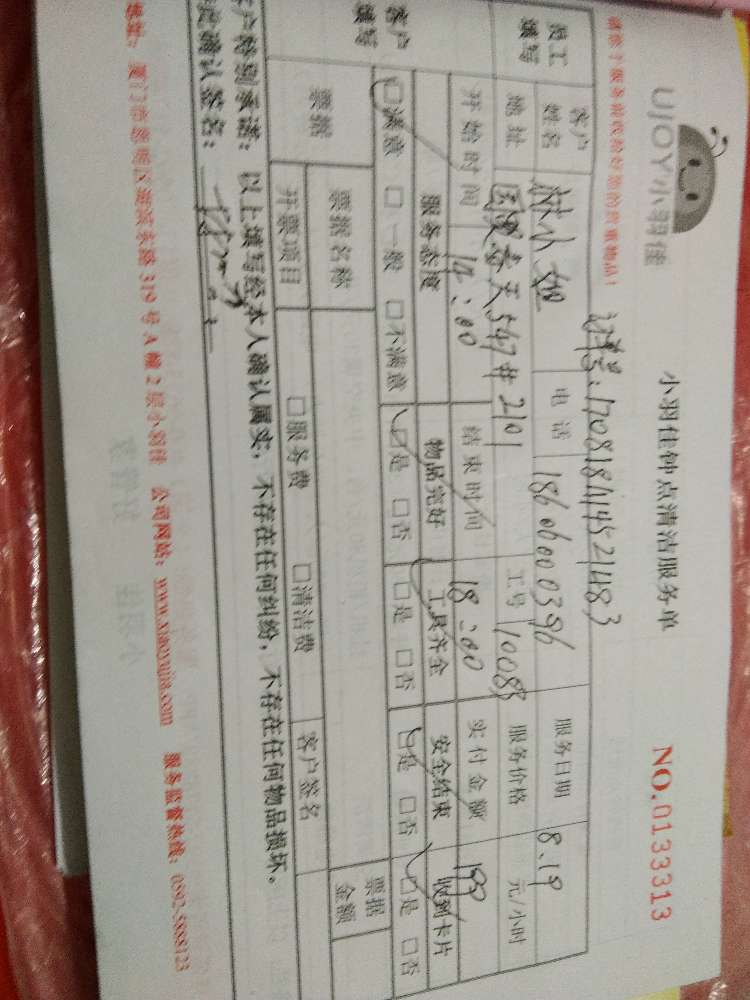 UJOY小羽佳
小羽佳钟点清洁服务单
NO.0133313
请您于服务前收拾好您的贵重物品!
订单号:170818114521483
员工填写
客户姓名 林小姐 电话 18606000396 服务日期 8.19
地址 547#2101 工号 10083 服务价格 元/小时
开始时间 14:00 结束时间 18:00 实付金额 199
客户填写
服务态度 物品完好 工具齐全 安全结束 收到卡片
□满意 □一般 □不满意 □是 □否 □是 □否 □是 □否 □是 □否
票据
票据名称 票据金额
开票项目 □服务费 □清洁费 客户签名
客户特别承诺:以上填写经本人确认属实,不存在任何纠纷,不存在任何物品损坏。
确认签名:
地址:厦门市思明区 319号A幢2层小羽佳 公司网站:www.xiaoyujia.com 服务监督热线:0592-5888123